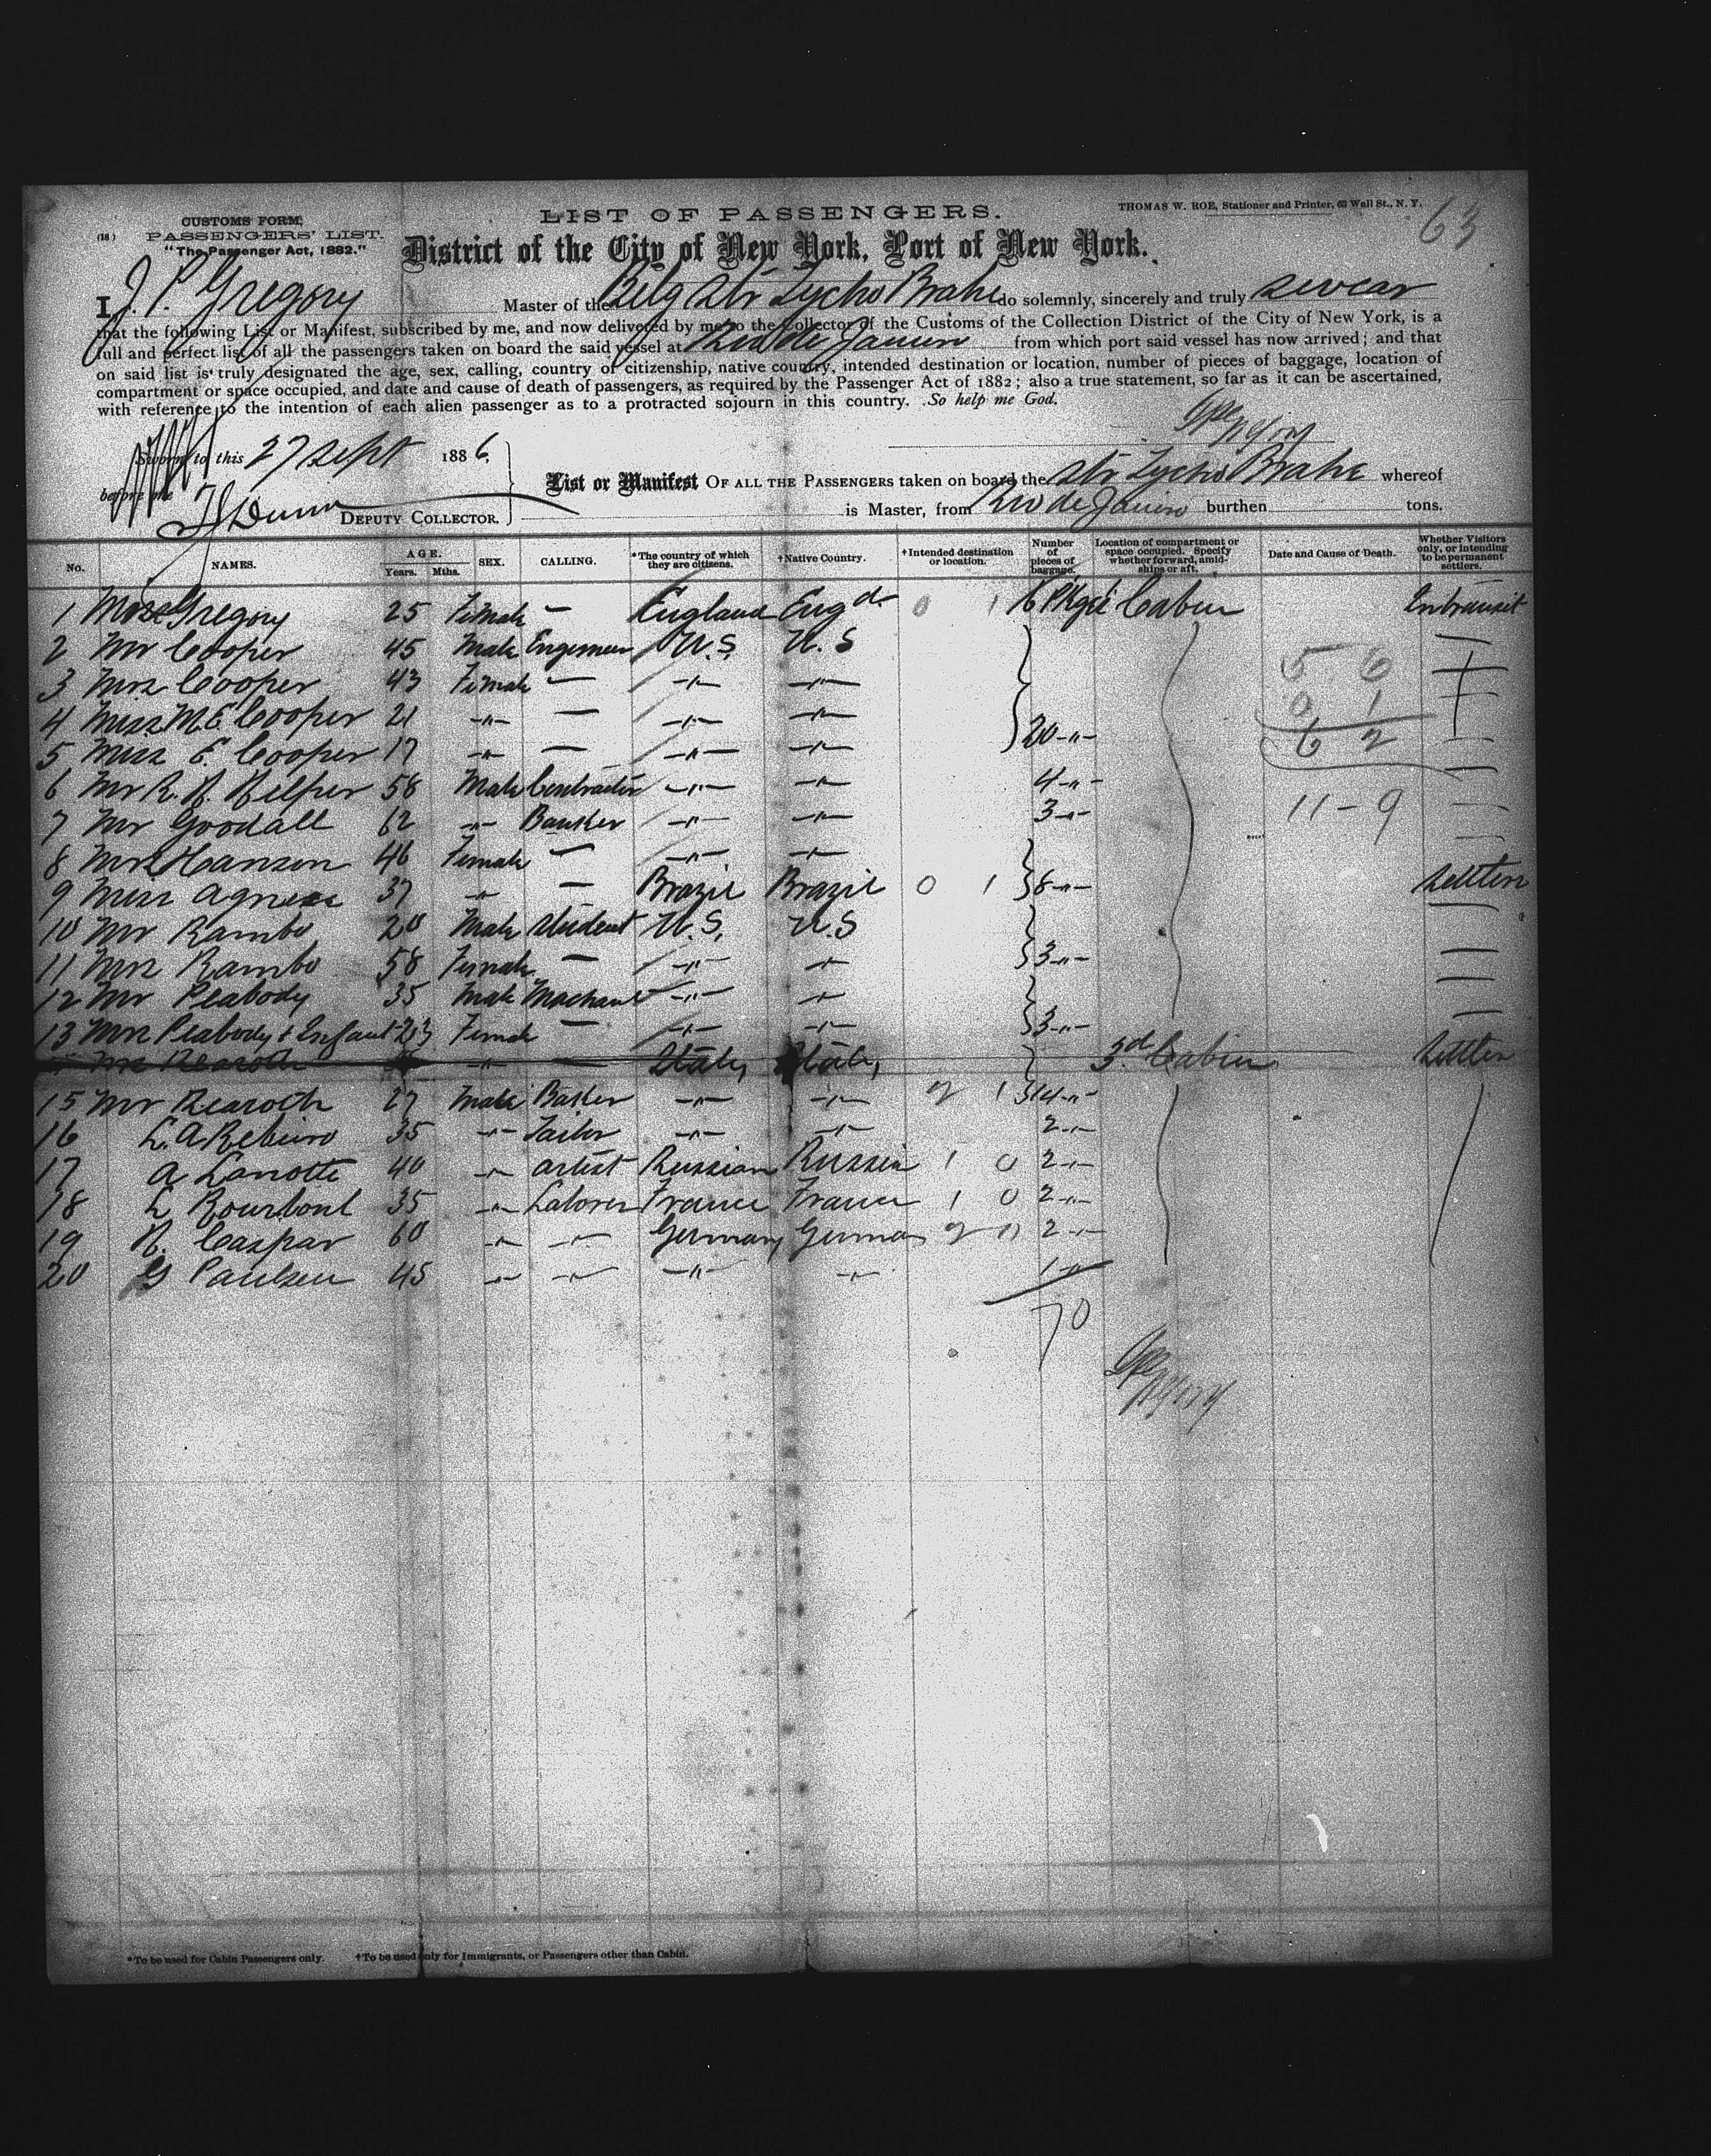 CUSTOMS FORM,
(18) PASSENGERS' LIST.
"The Passenger Act, 1882."
LIST OF PASSENGERS.
THOMAS W. ROE, Stationer and Printer, 63 Wall St., N. Y.
63
District of the City of New York, Port of New York.
I, J. P. Gregory Master of the Belg Str Tycho Brahe do solemnly, sincerely and truly swear
that the following List or Manifest, subscribed by me, and now delivered by me to the Collector of the Customs of the Collection District of the City of New York, is a
full and perfect list of all the passengers taken on board the said vessel at Rio de Janeiro from which port said vessel has now arrived; and that
on said list is truly designated the age, sex, calling, country of citizenship, native country, intended destination or location, number of pieces of baggage, location of
compartment or space occupied, and date and cause of death of passengers, as required by the Passenger Act of 1882; also a true statement, so far as it can be ascertained,
with reference to the intention of each alien passenger as to a protracted sojourn in this country. So help me God.
Sworn to this 27 Sept 1886,
before me
Dunn DEPUTY COLLECTOR.
List or Manifest OF ALL THE PASSENGERS taken on board the Str Tycho Brahe whereof
is Master, from Rio de Janeiro burthen tons.
No. NAMES. AGE. Years. Mths. SEX. CALLING. *The country of which they are citizens. †Native Country. †Intended destination or location. Number of pieces of baggage. Location of compartment or space occupied. Specify whether forward, amidships or aft. Date and Cause of Death. Whether Visitors only, or intending to be permanent settlers.
1 Mrs Gregory 25 Female — England Engd. 0 1 6 Pkges Cabin Intransit
2 Mr Cooper 45 Male Engineer U.S. U.S —
3 Mrs Cooper 43 Female — -"- -"- 5 6 —
4 Miss M.E. Cooper 21 -"- — -"- -"- 0 1 —
5 Miss E. Cooper 17 -"- — -"- -"- 20 -"- 6 2 —
6 Mr R. H. Helper 58 Male Contractor -"- -"- 4 -"- —
7 Mr Goodall 62 -"- Banker -"- -"- 3 -"- 11 - 9 —
8 Mrs Hanson 46 Female — -"- -"- —
9 Miss Agness 37 -"- — Brazil Brazil 0 1 8 -"- Settlers
10 Mr Rambo 20 Male Student U.S. U.S —
11 Mrs Rambo 58 Female — -"- -"- 3 -"- —
12 Mr Peabody 35 Male -"- -"- —
13 Mrs Peabody & Infant Female — -"- -"- 3 -"- —
-"- — Italy Italy 3d. Cabin Settler
15 Mr 27 Male Baker -"- -"- 1 14 -"-
16 L. A Rebeiro 35 -"- Tailor -"- -"- 2 -"-
17 A Lanotte 40 -"- Artist Russian Russia 1 0 2 -"-
18 L Rourbont 35 -"- Laborer France France 1 0 2 -"-
19 H. Caspar 60 -"- -"- Germany German 2 -"-
20 G Paulsen 45 -"- -"- -"- -"- 1 -"-
70
*To be used for Cabin Passengers only. †To be used only for Immigrants, or Passengers other than Cabin.